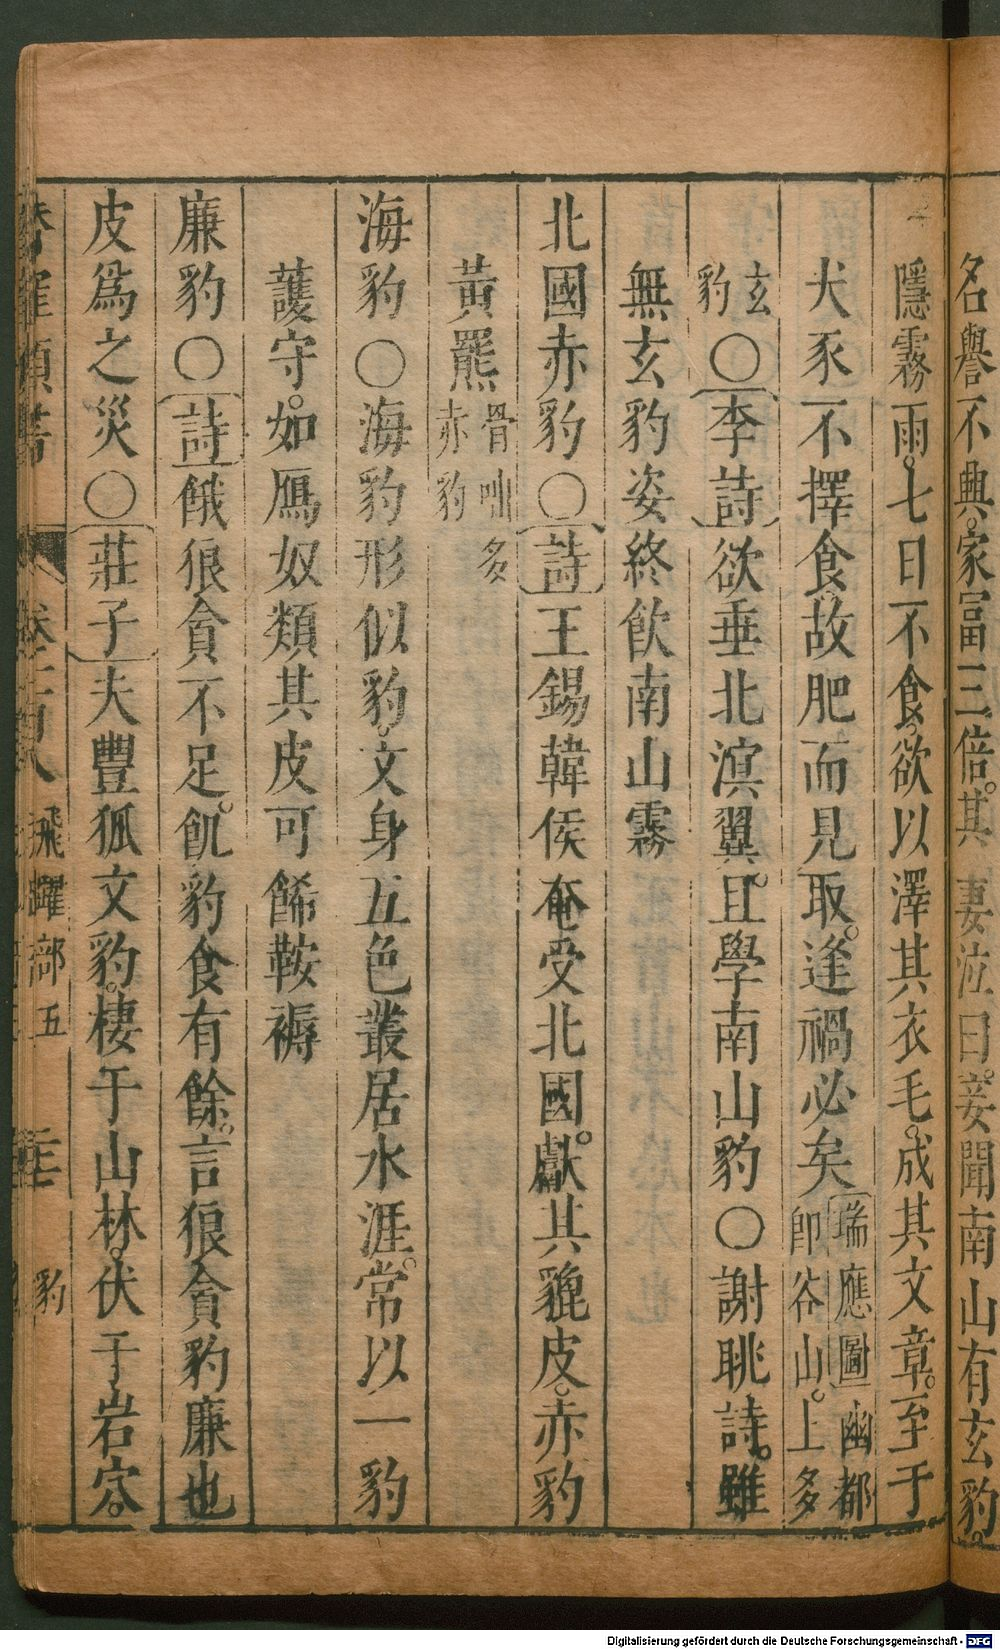 名譽不興家富三倍其妻泣曰妾聞南山有玄豹
隱霧雨七日不食欲以澤其衣毛成其文章至于
犬豕不擇食故肥而見取逢禍必矣瑞應圖幽都即谷山上多
玄豹〇李詩欲垂北溟翼且學南山豹〇謝眺詩雖
無玄豹姿終飲南山霧
北國赤豹〇詩王錫韓侯奄受北國獻其貔皮赤豹
黃羆骨咄多赤豹
海豹〇海豹形似豹文身五色叢居水涯常以一豹
護守如鴈奴類其皮可餙鞍褥
廉豹〇詩餓狼貪不足飢豹食有餘言狼貪豹廉也
皮為之災〇莊子夫豐狐文豹棲于山林伏于岩穴
飛躍部五 豹
Digitalisierung gefördert durch die Deutsche Forschungsgemeinschaft - DFG